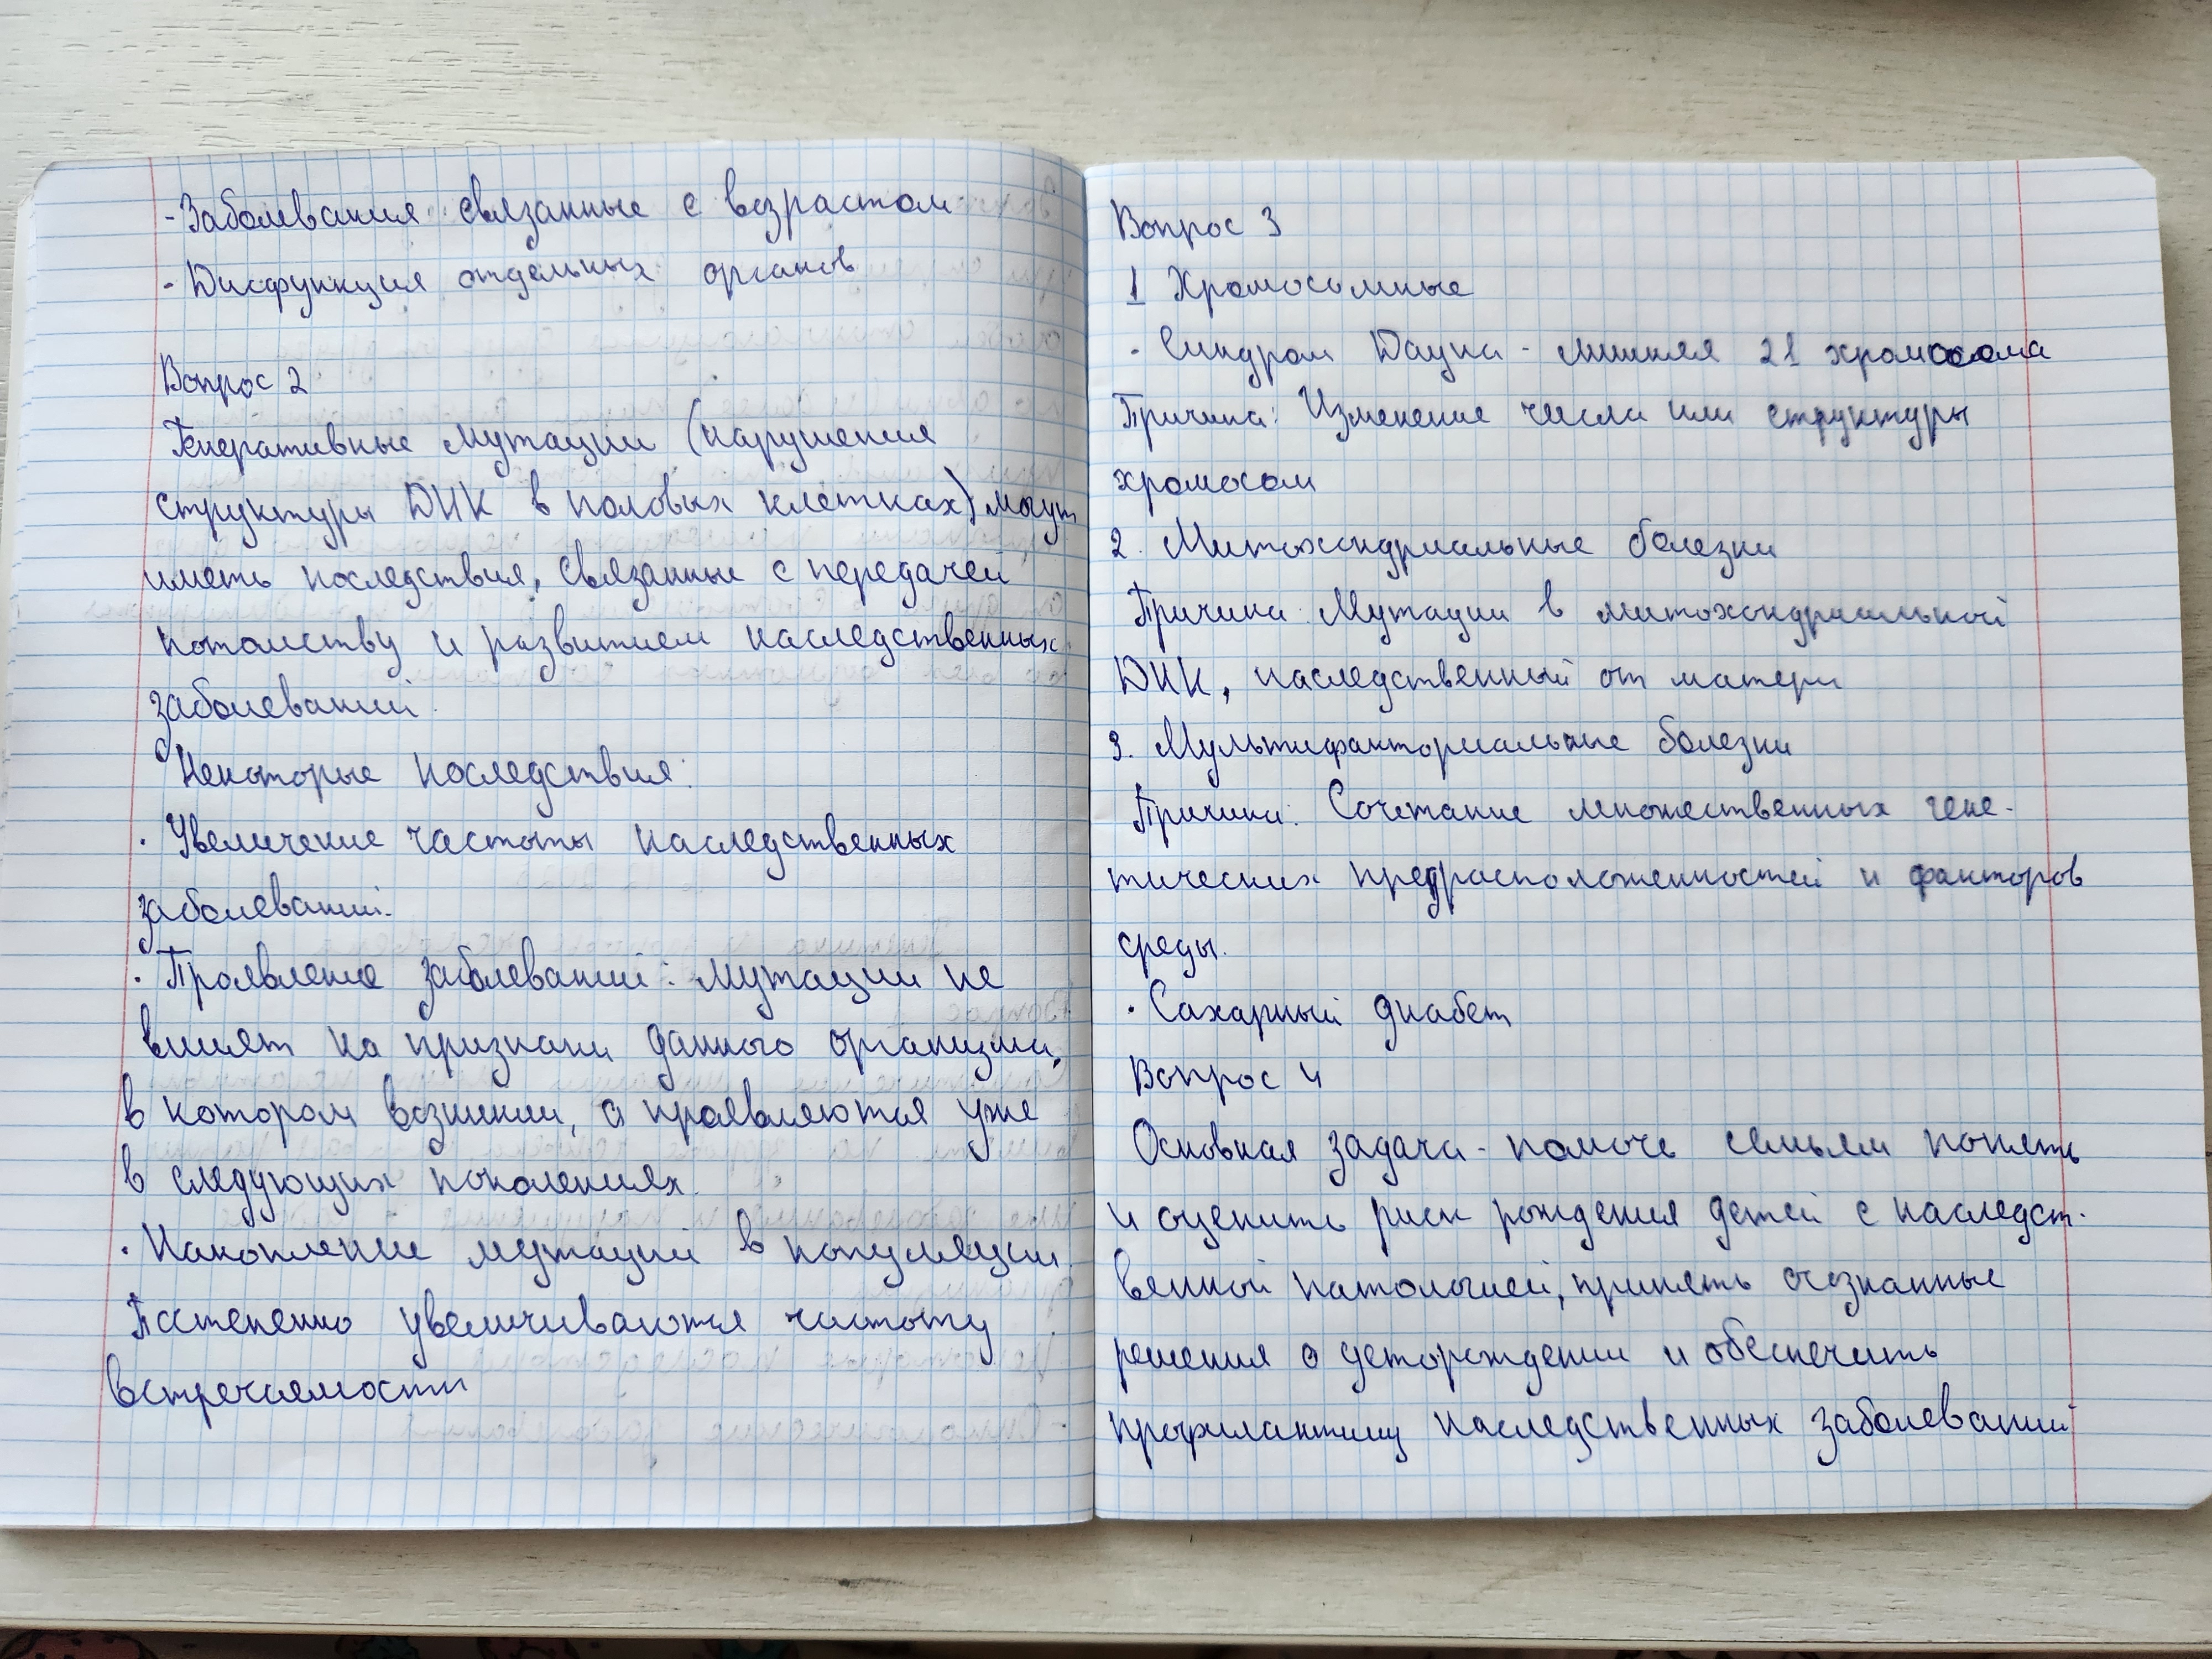 - Заболевания связанные с возрастом
- Дисфункция отдельных органов
Вопрос 2
Генеративные мутации (нарушения
структуры ДНК в половых клетках) могут
иметь последствия, связанные с передачей
потомству и развитием наследственных
заболеваний.
Некоторые последствия:
· Увеличение частоты наследственных
заболеваний.
· Проявление заболеваний: мутации не
влияют на признаки данного организма,
в котором возникли, а проявляются уже
в следующих поколениях.
· Накопление мутаций в популяции.
Постепенно увеличиваются частоту
встречаемости
Вопрос 3
1 Хромосомные
· Синдром Дауна - лишняя 21 хромосома
Причина: Изменение числа или структуры
хромосом
2. Митохондриальные болезни
Причина: Мутации в митохондриальной
ДНК, наследственный от матери
3. Мультифакториальные болезни
Причина: Сочетание множественных гене-
тических предрасположенностей и факторов
среды.
· Сахарный диабет
Вопрос 4
Основная задача - помочь семьям понять
и оценить риск рождения детей с наследст-
венной патологией, принять осознанные
решения о деторождении и обеспечить
профилактику наследственных заболеваний